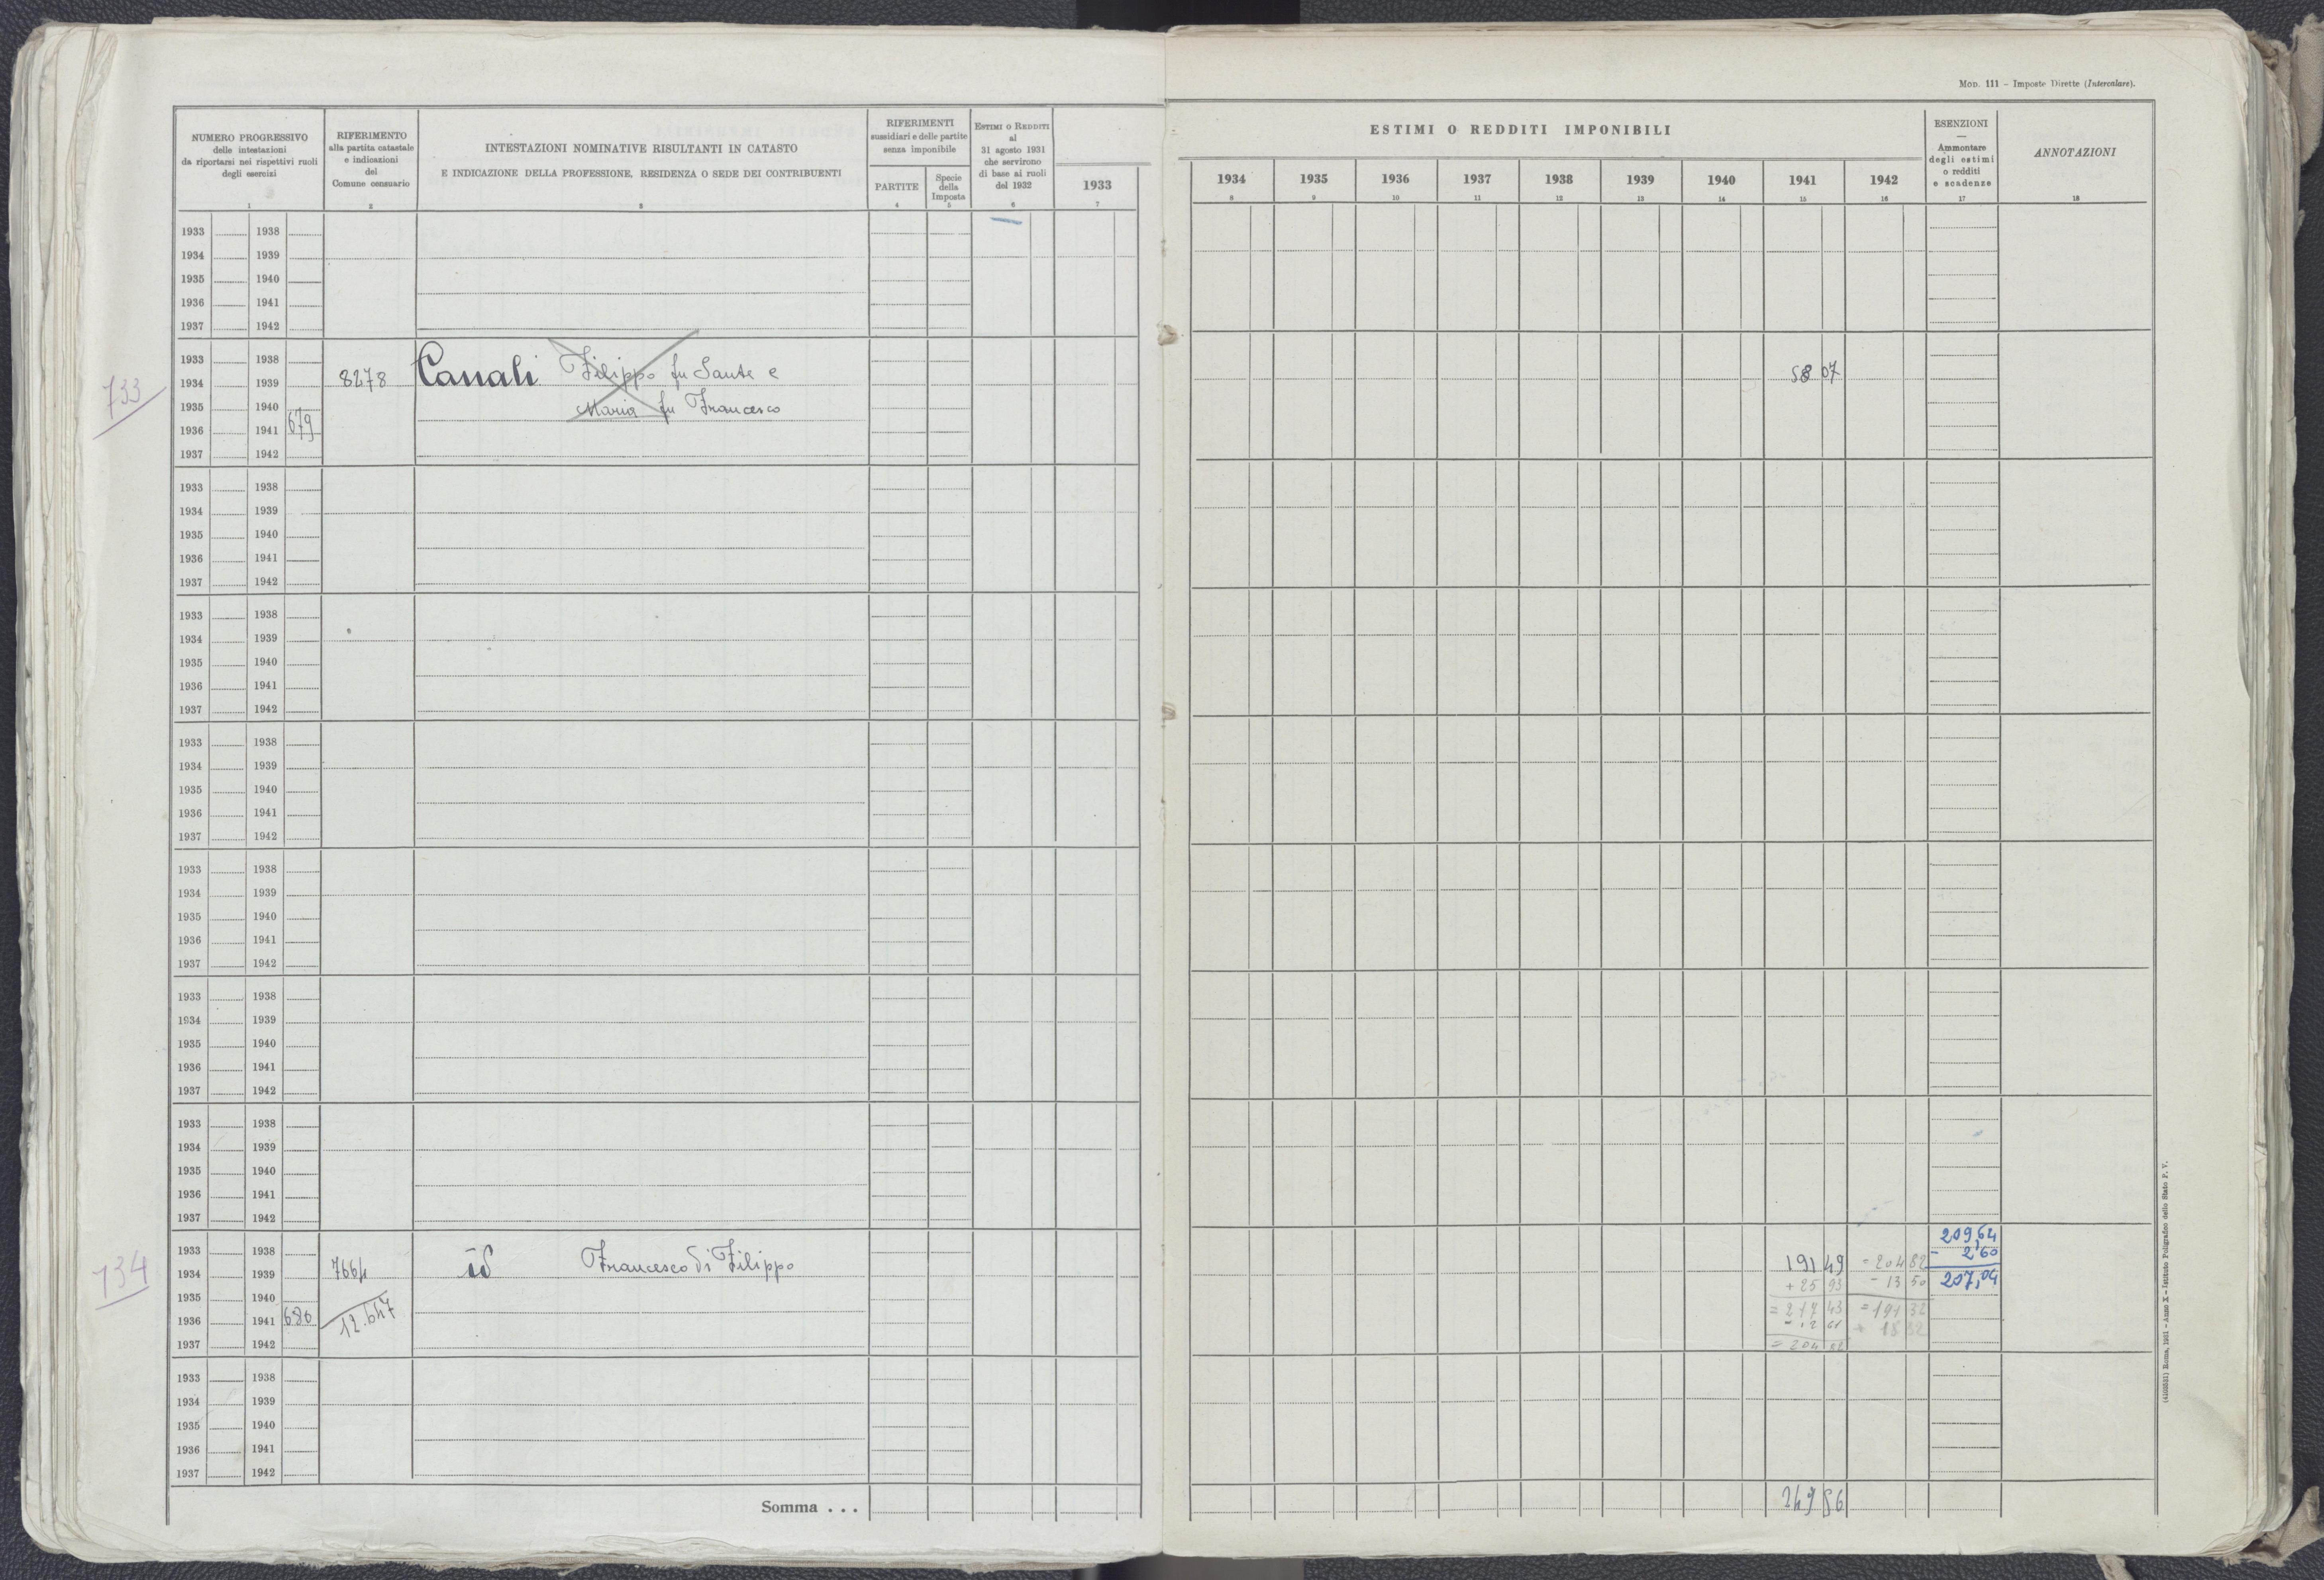 MOD. 111 – Imposte Dirette (Intercalare).
NUMERO PROGRESSIVO
delle intestazioni
da riportarsi nei rispettivi ruoli
degli esercizi
1
RIFERIMENTO
alla partita catastale
e indicazioni
del
Comune censuario
2
INTESTAZIONI NOMINATIVE RISULTANTI IN CATASTO
E INDICAZIONE DELLA PROFESSIONE, RESIDENZA O SEDE DEI CONTRIBUENTI
3
RIFERIMENTI
sussidiari e delle partite
senza imponibile
PARTITE
4
Specie
della
Imposta
5
ESTIMI O REDDITI
al
31 agosto 1931
che servirono
di base ai ruoli
del 1932
6
ESTIMI O REDDITI IMPONIBILI
1933 1934 1935 1936 1937 1938 1939 1940 1941 1942
7 8 9 10 11 12 13 14 15 16
ESENZIONI
—
Ammontare
degli estimi
o redditi
e scadenze
17
ANNOTAZIONI
18
1933 1938
1934 1939
1935 1940
1936 1941
1937 1942
733
1933 1938
1934 1939 8278 Canali Filippo fu Sante e 58 07
1935 1940 Maria fu Francesco
1936 1941 679
1937 1942
1933 1938
1934 1939
1935 1940
1936 1941
1937 1942
1933 1938
1934 1939
1935 1940
1936 1941
1937 1942
1933 1938
1934 1939
1935 1940
1936 1941
1937 1942
1933 1938
1934 1939
1935 1940
1936 1941
1937 1942
1933 1938
1934 1939
1935 1940
1936 1941
1937 1942
1933 1938
1934 1939
1935 1940
1936 1941
1937 1942
734
1933 1938 209,64
1934 1939 7664 id Francesco di Filippo 191 49 = 204 82 - 2,60
1935 1940 + 25 93 - 13 50 207,04
1936 1941 680 12.647 = 217 43 = 191 32
1937 1942 = 204 82
1933 1938
1934 1939
1935 1940
1936 1941
1937 1942
Somma . . . 249 56
(4103531) Roma, 1931 – Anno X – Istituto Poligrafico dello Stato P. V.